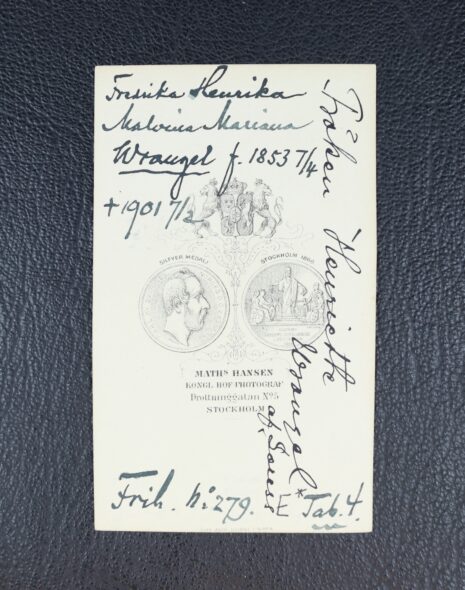 Fredrika Henrika
Malvina Mariana
Wrangel f. 1853 7/4
+ 1901 7/2
Fröken Henriette Wrangel
af Sauss
SILFVER MEDALJ
STOCKHOLM 1866
MATHS HANSEN
KONGL. HOF-PHOTOGRAF
Drottninggatan No 5
STOCKHOLM
Frih. No: 279. E* Tab. 4.